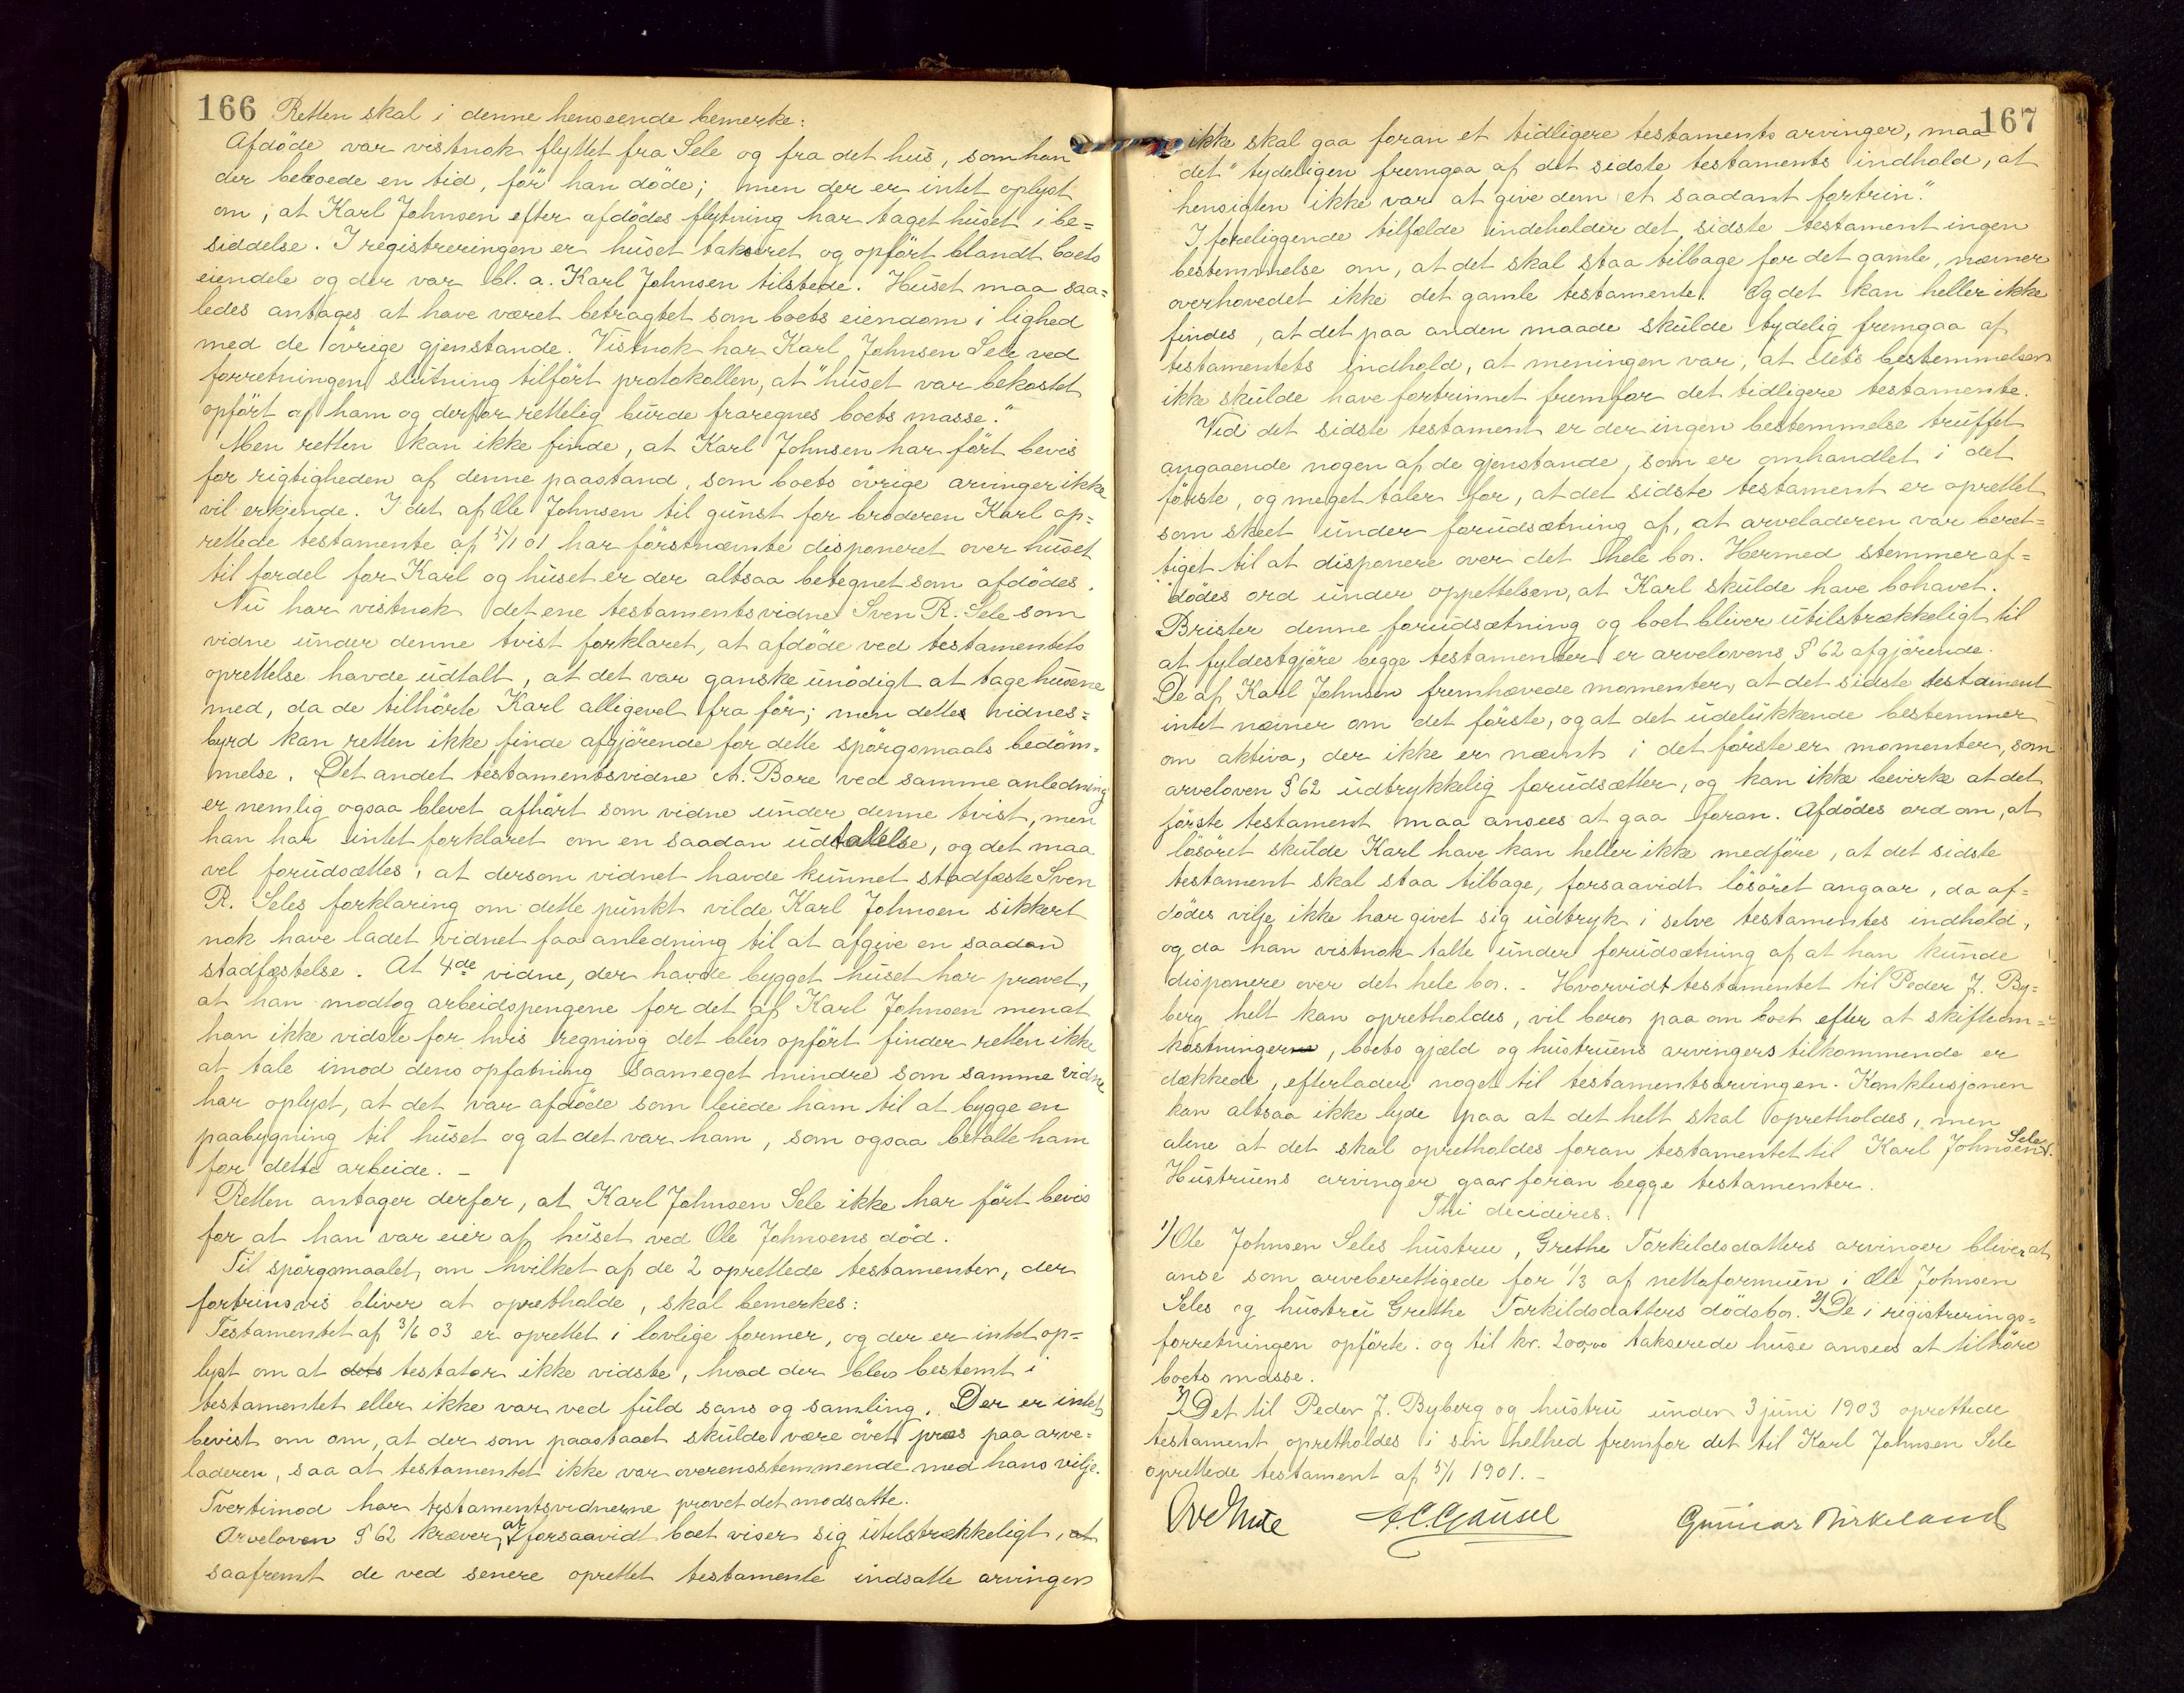 166 Retten skal i denne henseende bemerke:
Afdöde var vistnok flyttet fra Sele og fra det hus, som han
der beboede en tid, för han döde; men der er intet oplyst
om, at Karl Johnsen efter afdödes flytning har taget huset i be=
siddelse. I registreringen er huset taksert og opfört blandt boets
eiendele og der var bl. a. Karl Johnsen tilstede. Huset maa saa=
ledes antages at have været betragtet som boets eiendom i lighed
med de övrige gjenstande. Vistnok har Karl Johnsen Sele ved
forretningens slutning tilfört protokollen, at "huset var bekostet
opfört af ham og derfor rettelig burde fraregnes boets masse."
Men retten kan ikke finde, at Karl Johnsen har fört bevis
for rigtigheden af denne paastand, som boets övrige arvinger ikke
vil erkjende. I det af Ole Johnsen til gunst for broderen Karl op=
rettede testamente af 5/1 01 har förstnævnte disponeret over huset
til fordel for Karl og huset er der altsaa betegnet som afdödes.
Nu har vistnok det ene testamentsvidne Sven R. Sele som
vidne under denne tvist forklaret, at afdöde ved testamentets
oprettelse havde udtalt, at det var ganske unödigt at tage husene
med, da de tilhörte Karl alligevel fra för; men dette vidnes=
byrd kan retten ikke finde afgjörende for dette spörgsmaals bedöm=
melse. Det andet testamentsvidne A. Bore ved samme anledning
er nemlig ogsaa blevet afhört som vidne under denne tvist, men
han har intet forklaret om en saadan udtalelse, og det maa
vel forudsættes, at dersom vidnet havde kunnet stadfæste Sven
R. Seles forklaring om dette punkt vilde Karl Johnsen sikkert
nok have ladet vidnet faa anledning til at afgive en saadan
stadfæstelse. At 4de vidne, der havde bygget huset har provet,
at han modtog arbeidspengene for det af Karl Johnsen men at
han ikke vidste for hvis regning det blev opfört finder retten ikke
at tale imod dens opfatning saameget mindre som samme vidne
har oplyst, at det var afdöde som leiede ham til at bygge en
paabygning til huset og at det var ham, som ogsaa betalte ham
for dette arbeide. –
Retten antager derfor, at Karl Johnsen Sele ikke har fört bevis
for at han var eier af huset ved Ole Johnsens död.
Til spörgsmaalet, om hvilket af de 2 oprettede testamenter, der
fortrinsvis bliver at opretholde, skal bemerkes:
Testamentet af 3/6 03 er oprettet i lovlige former, og der er intet op=
lyst om at dets testator ikke vidste, hvad der blev bestemt i
testamentet eller ikke var ved fuld sans og samling. Der er intet
bevist om om, at der som paastaaet skulde være övet pres paa arve=
laderen, saa at testamentet ikke var overensstemmende med hans vilje.
Tvertimod har testamentsvidnerne provet det modsatte.
Arveloven § 62 kræver, at forsaavidt boet viser sig utilstrækkeligt, at
saafremt de ved senere oprettet testamente indsatte arvinger
167
ikke skal gaa foran et tidligere testaments arvinger, maa
det "tydeligen fremgaa af det sidste testaments indhold, at
hensigten ikke var at give dem et saadant fortrin."
I foreliggende tilfælde indeholder det sidste testament ingen
bestemmelse om, at det skal staa tilbage for det gamle, nævner
overhovedet ikke det gamle testamente. Og det kan heller ikke
findes, at det paa anden maade skulde tydelig fremgaa af
testamentets indhold, at meningen var, at dets bestemmelser
ikke skulde have fortrinnet fremfor det tidligere testamente.
Ved det sidste testament er der ingen bestemmelse truffet
angaaende nogen af de gjenstande, som er omhandlet i det
förste, og meget taler for, at det sidste testament er oprettet
som skeet under forudsætning af, at arveladeren var beret=
tiget til at disponere over det hele bo. Hermed stemmer af=
dödes ord under oppettelsen, at Karl skulde have bohavet.
Brister denne forudsætning og boet bliver utilstrækkeligt til
at fyldestgjöre begge testamenter er arvelovens § 62 afgjörende.
De af Karl Johnsen fremhævede momenter, at det sidste testament
intet nævner om det förste, og at det udelukkende bestemmer
om aktiva, der ikke er nævnt i det förste er momenter, som
arveloven § 62 udtrykkelig forudsætter, og kan ikke bevirke at det
förste testament maa ansees at gaa foran. Afdödes ord om, at
lösöret skulde Karl have kan heller ikke medföre, at det sidste
testament skal staa tilbage, forsaavidt lösöret angaar, da af=
dödes vilje ikke har givet sig udtryk i selve testamentes indhold,
og da han vistnok talte under forudsætning af at han kunde
disponere over det hele bo. – Hvorvidt testamentet til Peder J. By=
berg helt kan opretholdes, vil bero paa om boet efter at skifteom=
kostninger, boets gjæld og hustruens arvingers tilkommende er
dækkede, efterlader noget til testamentsarvingen. Konklusjonen
kan altsaa ikke lyde paa at det helt skal opretholdes, men
alene at det skal opretholdes foran testamentet til Karl Johnsen Sele.
Hustruens arvinger gaar foran begge testamenter.
Thi decideres:
1) Ole Johnsen Seles hustru, Grethe Torkildsdatters arvinger bliver at
anse som arveberettigede for 1/3 af nettoformuen i Ole Johnsen
Seles og hustru Grethe Torkildsdatters dödsbo. 2) De i registrerings=
forretningen opförte og til kr. 200,00 takserede huse ansees at tilhöre
boets masse.
3) Det til Peder J. Byberg og hustru under 3 juni 1903 oprettede
testament opretholdes i sin helhed fremfor det til Karl Johnsen Sele
oprettede testament af 5/1 1901. –
A. C. Gausel Gunnar Birkeland